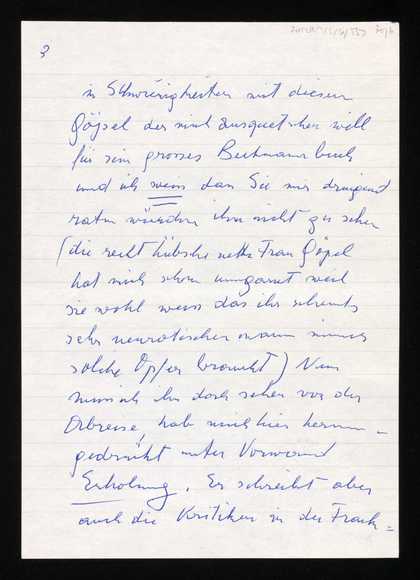 3
in Schwierigkeiten mit diesem
Göpel der mich ausquetschen will
für sein grosses Beckmannbuch
und ich weiss dass Sie mir dringend
raten würden ihn nicht zu sehen
(die recht hübsche nette Frau Göpel
hat mich schon umgarnt weil
sie wohl weiss das ihr
sehr neurotischer Mann immer
solche Opfer braucht) Nun
muss ich ihn doch sehen vor der
Abreise, hab mich hier herum-
gedrückt unter Vorwand
Erholung. Er schreibt aber
auch die Kritiken in der Frank=